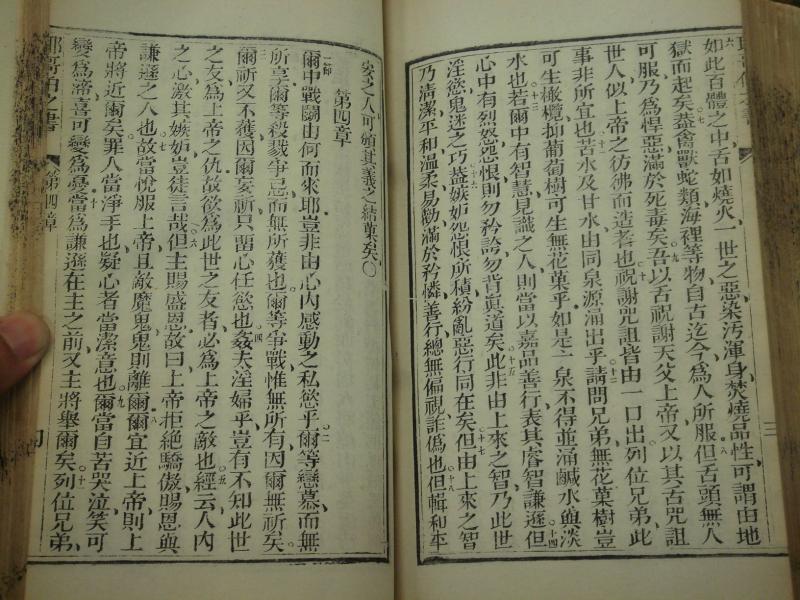 如此百體之中舌如燒火一世之惡染污渾身焚燒品性可謂由地
獄而起矣蓋禽獸蛇類海裡等物自古迄今為人所服但舌頭無人
可服乃為悍惡滿於死毒矣吾以舌祝謝天父上帝又以其舌咒詛
世人似上帝之彷彿而造者也祝謝咒詛皆由一口出列位兄弟此
事非所宜也苦水及甘水由同泉源涌出乎請問兄弟無花菓樹豈
可生橄欖抑葡萄樹可生無花菓乎如是一泉不得並涌鹹水與淡
水也若爾中有智慧見識之人則當以嘉品善行表其睿智謙遜但
心中有烈怒怨恨則勿矜誇勿背眞道矣此非由上來之智乃此世
淫慾鬼迷之巧蓋嫉妒怨恨所積紛亂惡行同在矣但由上來之智
乃清潔平和溫柔易勸滿於矜憐善行總無偏視詐僞也但輯和平
矣之人可殖其義之結菓矣〇
第四章
一節
爾中戰鬬由何而來耶豈非由心內感動之私慾乎爾等戀慕而無
所享爾等殺戮爭忌而無所獲也爾等爭戰惟無所有因爾無祈矣
爾祈又不獲因爾妄祈只留心任慾也姦夫淫婦乎豈有不知此世
之友為上帝之仇故欲為此世之友者必為上帝之敵也經云人內
之心激其嫉妒豈徒言哉但主賜盛恩故曰上帝拒絕驕傲賜恩與
謙遜之人也故當悅服上帝且敵魔鬼鬼則離爾爾宜近上帝則上
帝將近爾矣罪人當淨手也疑心者當潔意也爾當自苦哭泣笑可
變為涕喜可變為憂當為謙遜在主之前又主將舉爾矣列位兄弟
第四章